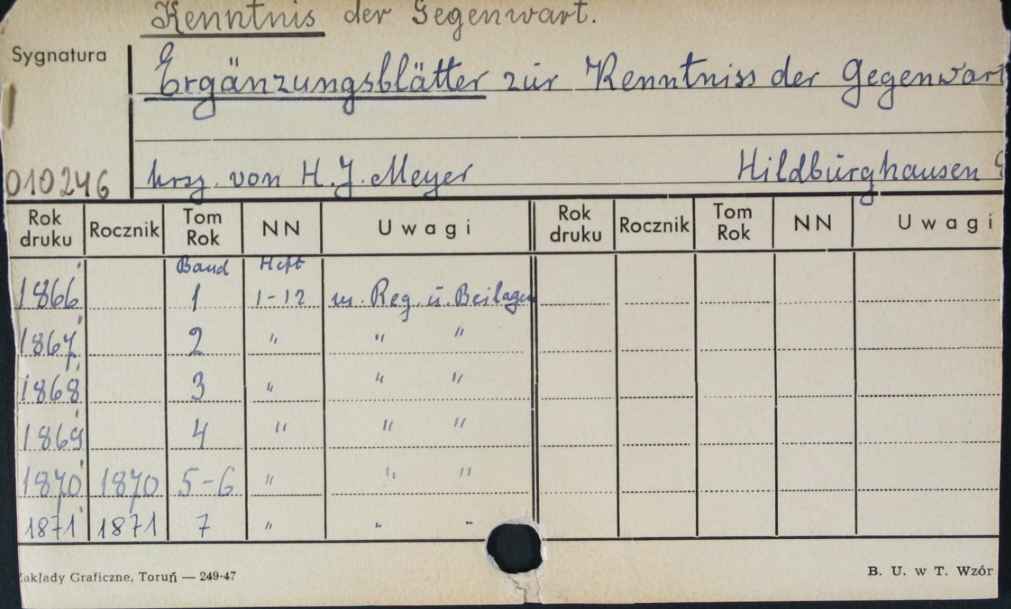 Kenntnis der Gegenwart.
Sygnatura
Ergänzungsblätter zur Kenntniss der Gegenwart
010246 hrsg. von H. J. Meyer Hildburghausen
Rok druku Rocznik Tom Rok NN Uwagi Rok druku Rocznik Tom Rok NN Uwagi
Band Heft
1866 1 1-12 m. Reg. u. Beilagen
1867 2 " " "
1868 3 " " "
1869 4 " " "
1870 1870 5-6 " " "
1871 1871 7 " " "
akłady Graficzne, Toruń — 249-47 B. U. w T. Wzór